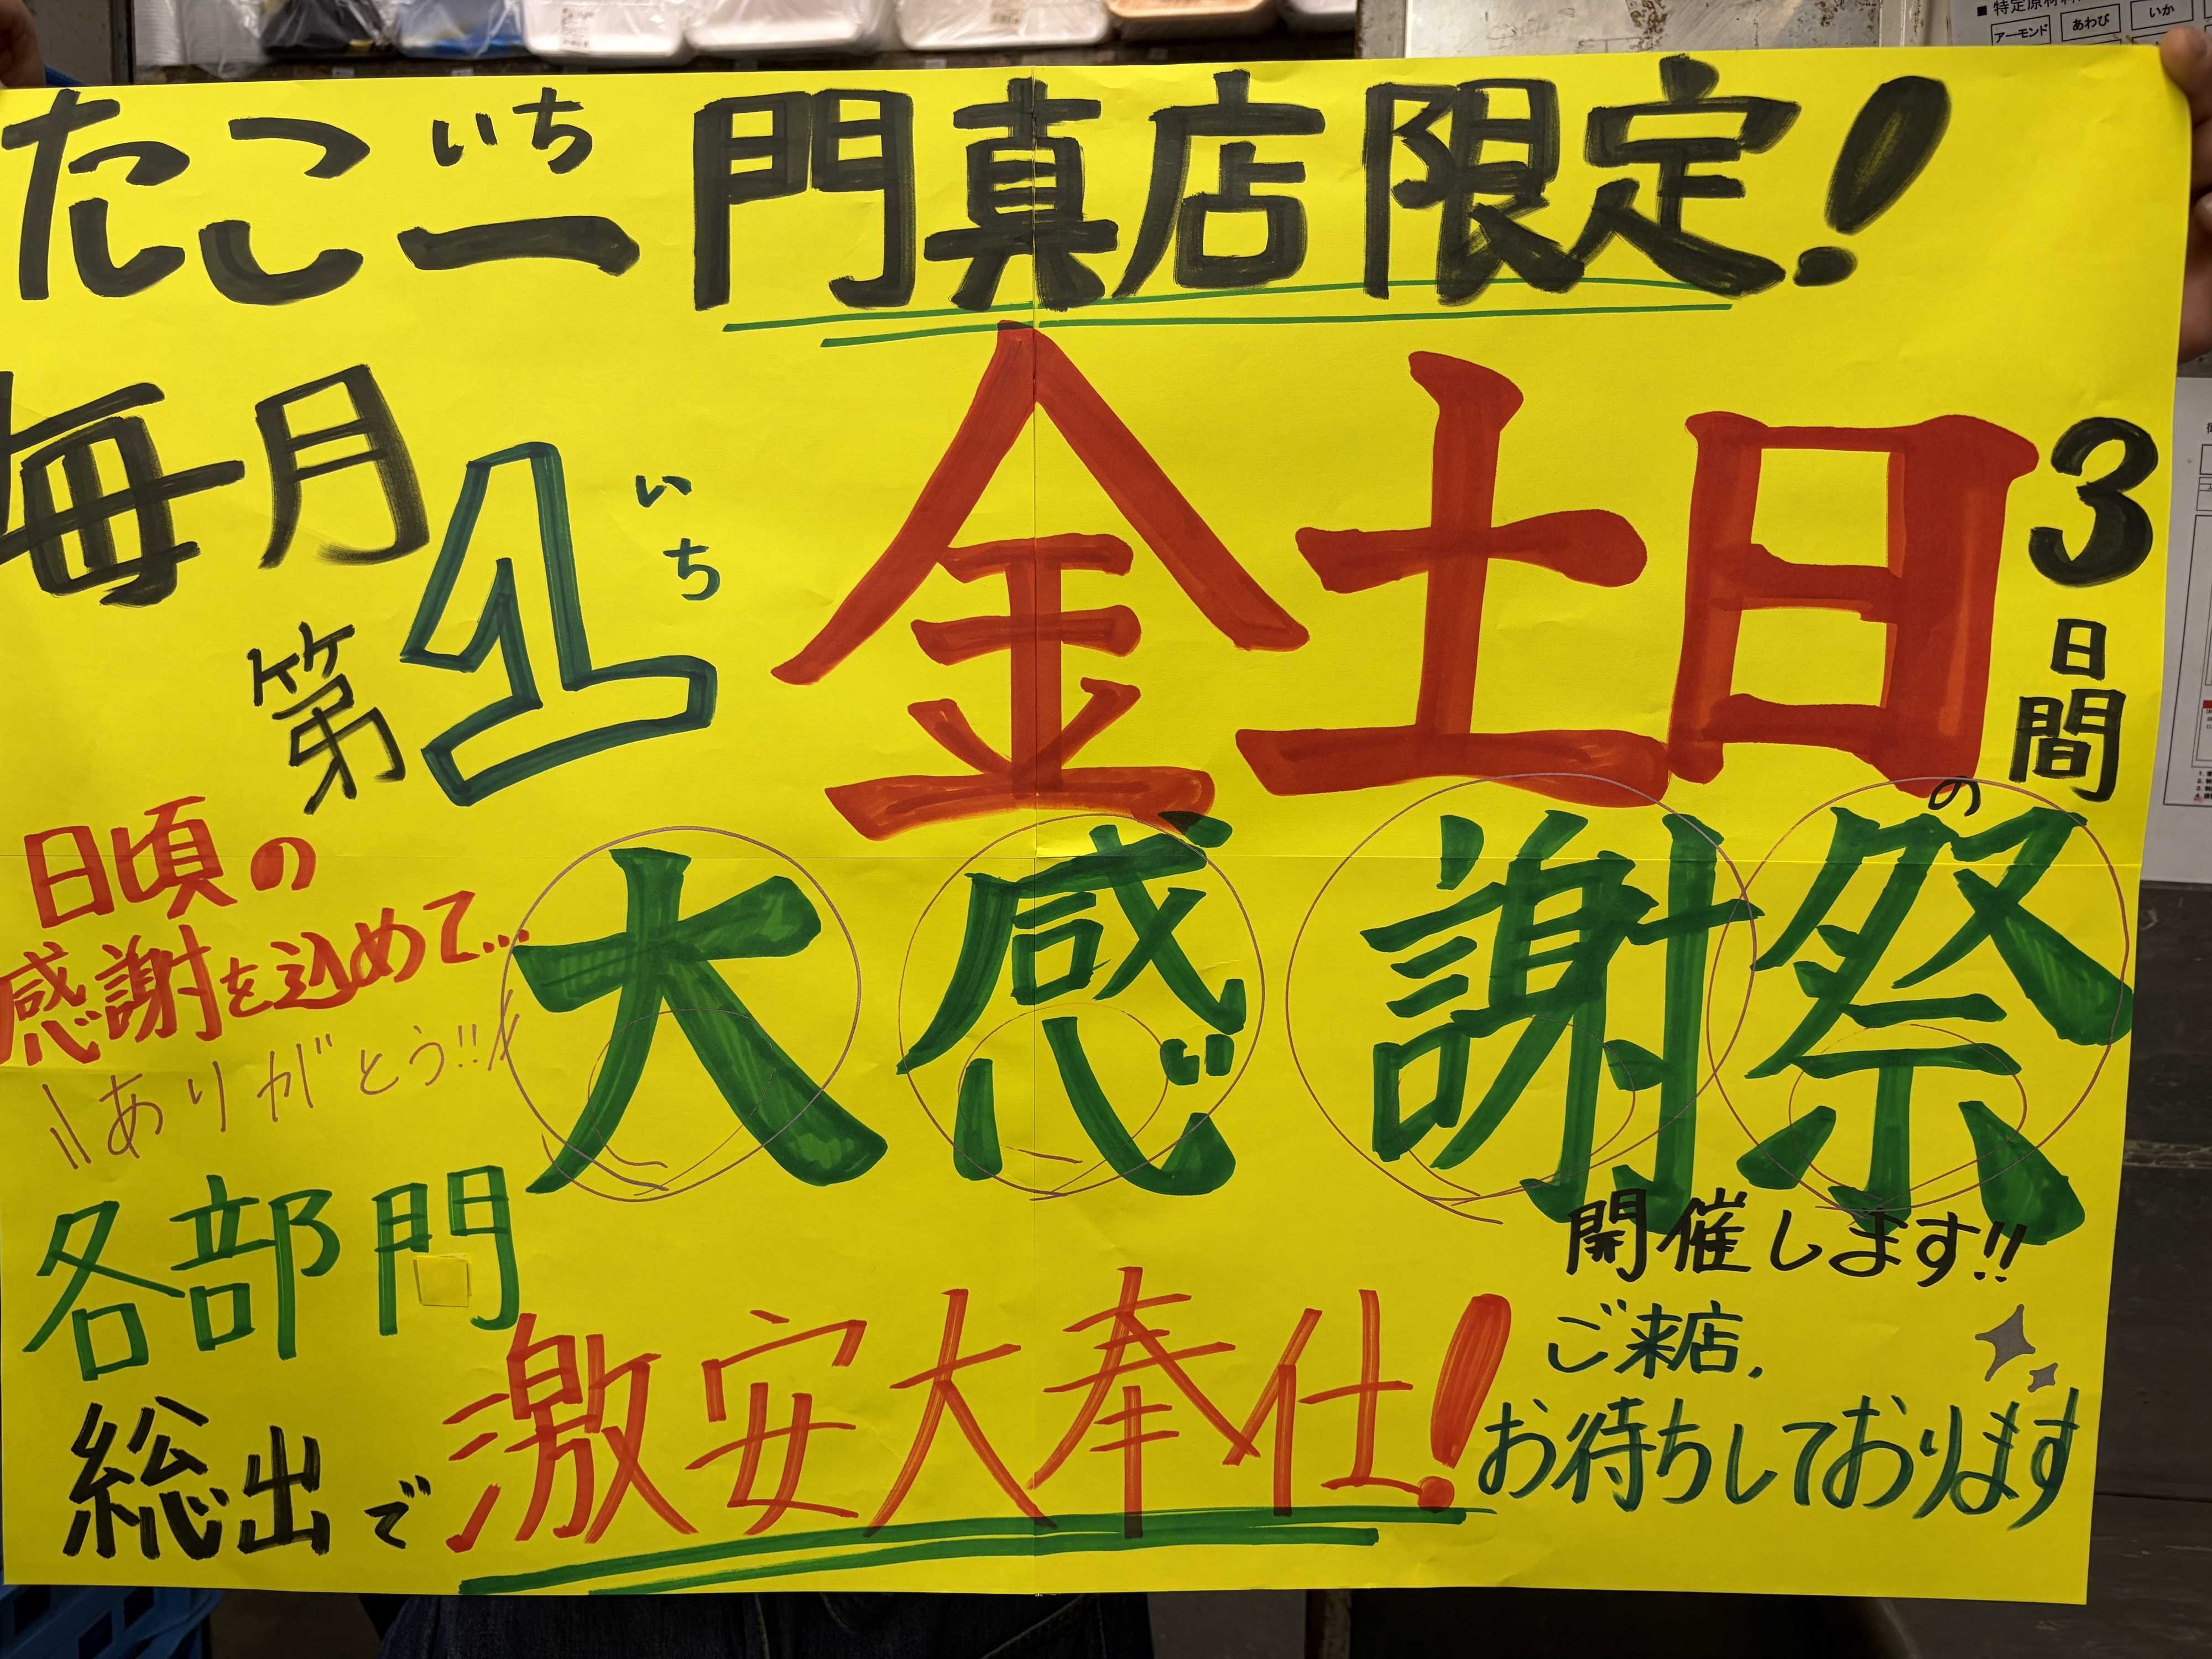 ■ 特定原材料
アーモンド あわび いか
いち
たこ一 門真店限定!
毎月
第1 いち
金土日
3日間
の
日頃の
感謝を込めて...
\\ありがとう!!//
大感謝祭
開催します!!
各部門
総出で
激安大奉仕!
ご来店、
お待ちしております